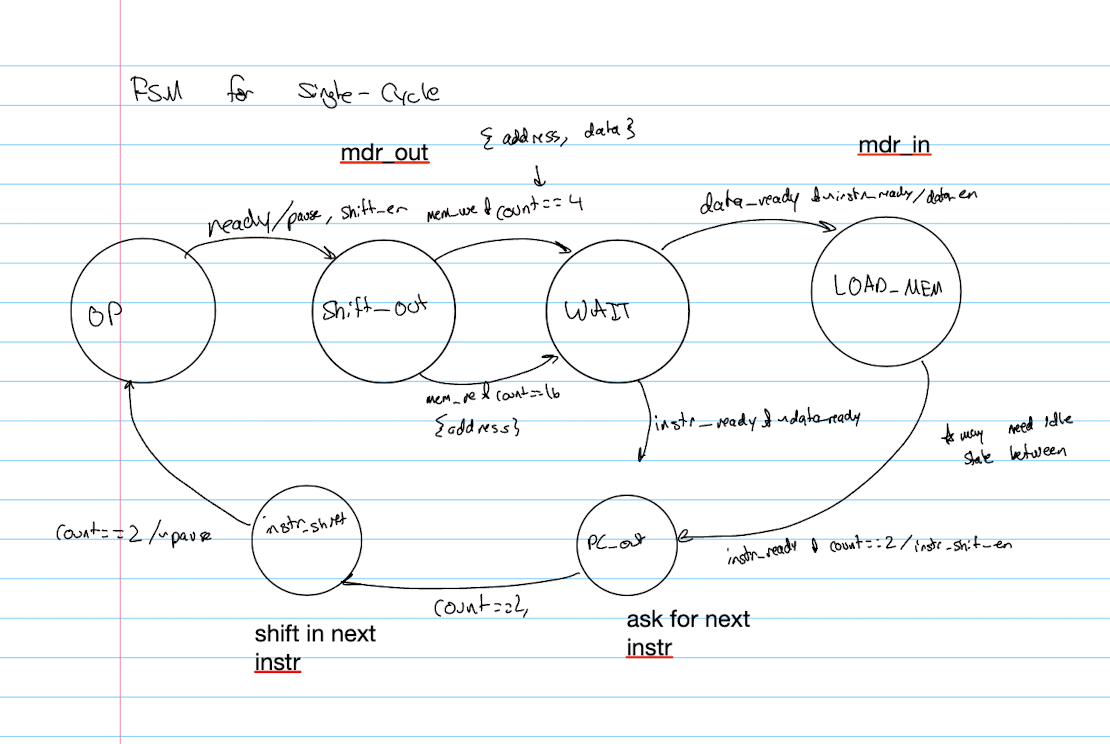 FSM for Single-Cycle
{address, data}
mdr_out
mdr_in
ready/pause, shift_en
mem_we & count==4
data_ready & ~instr_ready/data_en
OP
Shift_out
WAIT
LOAD_MEM
mem_re & count==16
{address}
instr_ready & ~data_ready
* may need idle
state between
count==2/~pause
instr_shift
PC_out
instr_ready & count==2/instr_shift_en
count==2,
shift in next
instr
ask for next
instr